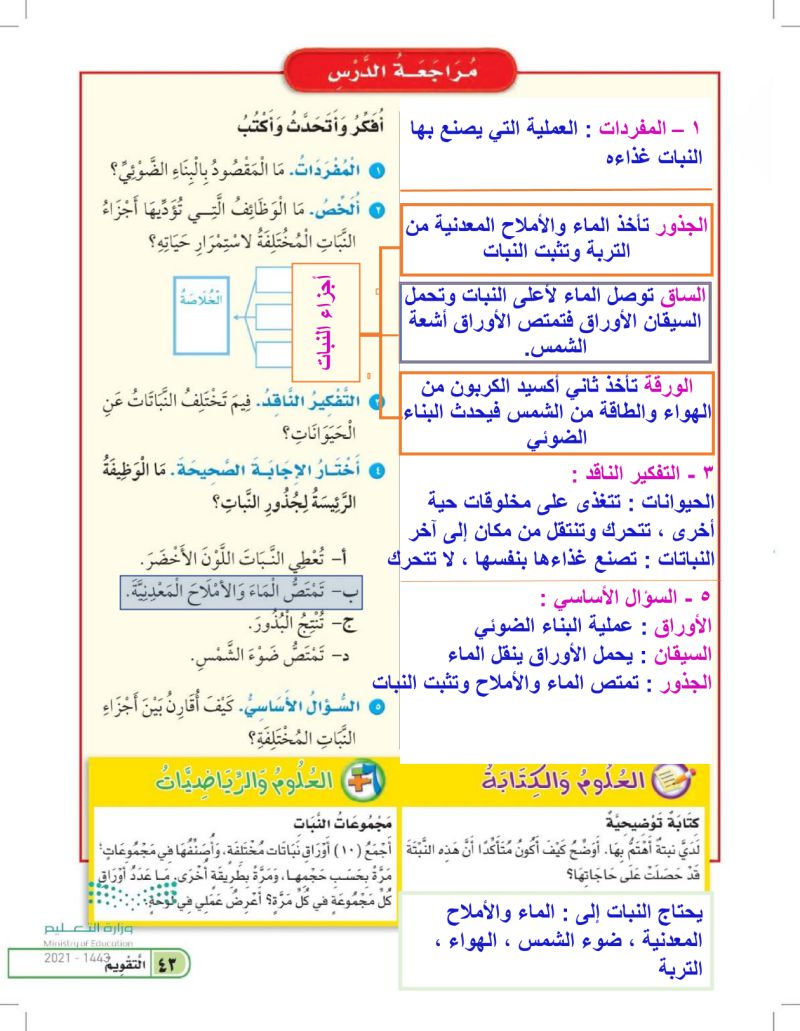 مُرَاجَعَةُ الدَّرْسِ
أُفَكِّرُ وَأَتَحَدَّثُ وَأَكْتُبُ
١ الْمُفْرَدَاتُ. مَا الْمَقْصُودُ بِالْبِنَاءِ الضَّوْئِيِّ؟
٢ أُلَخِّصُ. مَا الْوَظَائِفُ الَّتِي تُؤَدِّيهَا أَجْزَاءُ
النَّبَاتِ الْمُخْتَلِفَةُ لاسْتِمْرَارِ حَيَاتِهِ؟
أجزاء النبات
الْخُلَاصَةُ
٣ التَّفْكِيرُ النَّاقِدُ. فِيمَ تَخْتَلِفُ النَّبَاتَاتُ عَنِ
الْحَيَوَانَاتِ؟
٤ أَخْتَارُ الإِجَابَةَ الصَّحِيحَةَ. مَا الْوَظِيفَةُ
الرَّئِيسَةُ لِجُذُورِ النَّبَاتِ؟
أ- تُعْطِي النَّبَاتَ اللَّوْنَ الأَخْضَرَ.
ب- تَمْتَصُّ الْمَاءَ وَالأَمْلَاحَ الْمَعْدِنِيَّةَ.
ج- تُنْتِجُ الْبُذُورَ.
د- تَمْتَصُّ ضَوْءَ الشَّمْسِ.
٥ السُّؤَالُ الأَسَاسِيُّ. كَيْفَ أُقَارِنُ بَيْنَ أَجْزَاءِ
النَّبَاتِ الْمُخْتَلِفَةِ؟
١ – المفردات : العملية التي يصنع بها
النبات غذاءه
الجذور تأخذ الماء والأملاح المعدنية من
التربة وتثبت النبات
الساق توصل الماء لأعلى النبات وتحمل
السيقان الأوراق فتمتص الأوراق أشعة
الشمس.
الورقة تأخذ ثاني أكسيد الكربون من
الهواء والطاقة من الشمس فيحدث البناء
الضوئي
٣ - التفكير الناقد :
الحيوانات : تتغذى على مخلوقات حية
أخرى ، تتحرك وتنتقل من مكان إلى آخر
النباتات : تصنع غذاءها بنفسها ، لا تتحرك
٥ - السؤال الأساسي :
الأوراق : عملية البناء الضوئي
السيقان : يحمل الأوراق ينقل الماء
الجذور : تمتص الماء والأملاح وتثبت النبات
العُلُومُ وَالكِتَابَةُ
كِتَابَةٌ تَوْضِيحِيَّةٌ
لَدَيَّ نَبتةٌ أَهْتَمُّ بِهَا. أُوَضِّحُ كَيْفَ أَكُونُ مُتَأَكِّدًا أَنَّ هَذِهِ النَّبْتَةَ
قَدْ حَصَلَتْ عَلَى حَاجَاتِهَا؟
يحتاج النبات إلى : الماء والأملاح
المعدنية ، ضوء الشمس ، الهواء ،
التربة
العُلُومُ وَالرِّيَاضِيَّاتُ
مَجْمُوعَاتُ النَّبَات
أَجْمَعُ (١٠) أَوْرَاقِ نَبَاتَاتٍ مُخْتَلِفَةٍ، وَأُصَنِّفُهَا فِي مَجْمُوعَاتٍ؛
مَرَّةً بِحَسَبِ حَجْمِهَا، وَمَرَّةً بِطَرِيقَةٍ أُخْرَى. مَا عَدَدُ أَوْرَاقِ
كُلِّ مَجْمُوعَةٍ فِي كُلِّ مَرَّةٍ؟ أَعْرِضُ عَمَلِي فِي لَوْحَةٍ.
وزارة التعليم
Ministry of Education
2021 - 1443
التَّقْوِيمُ ٤٣